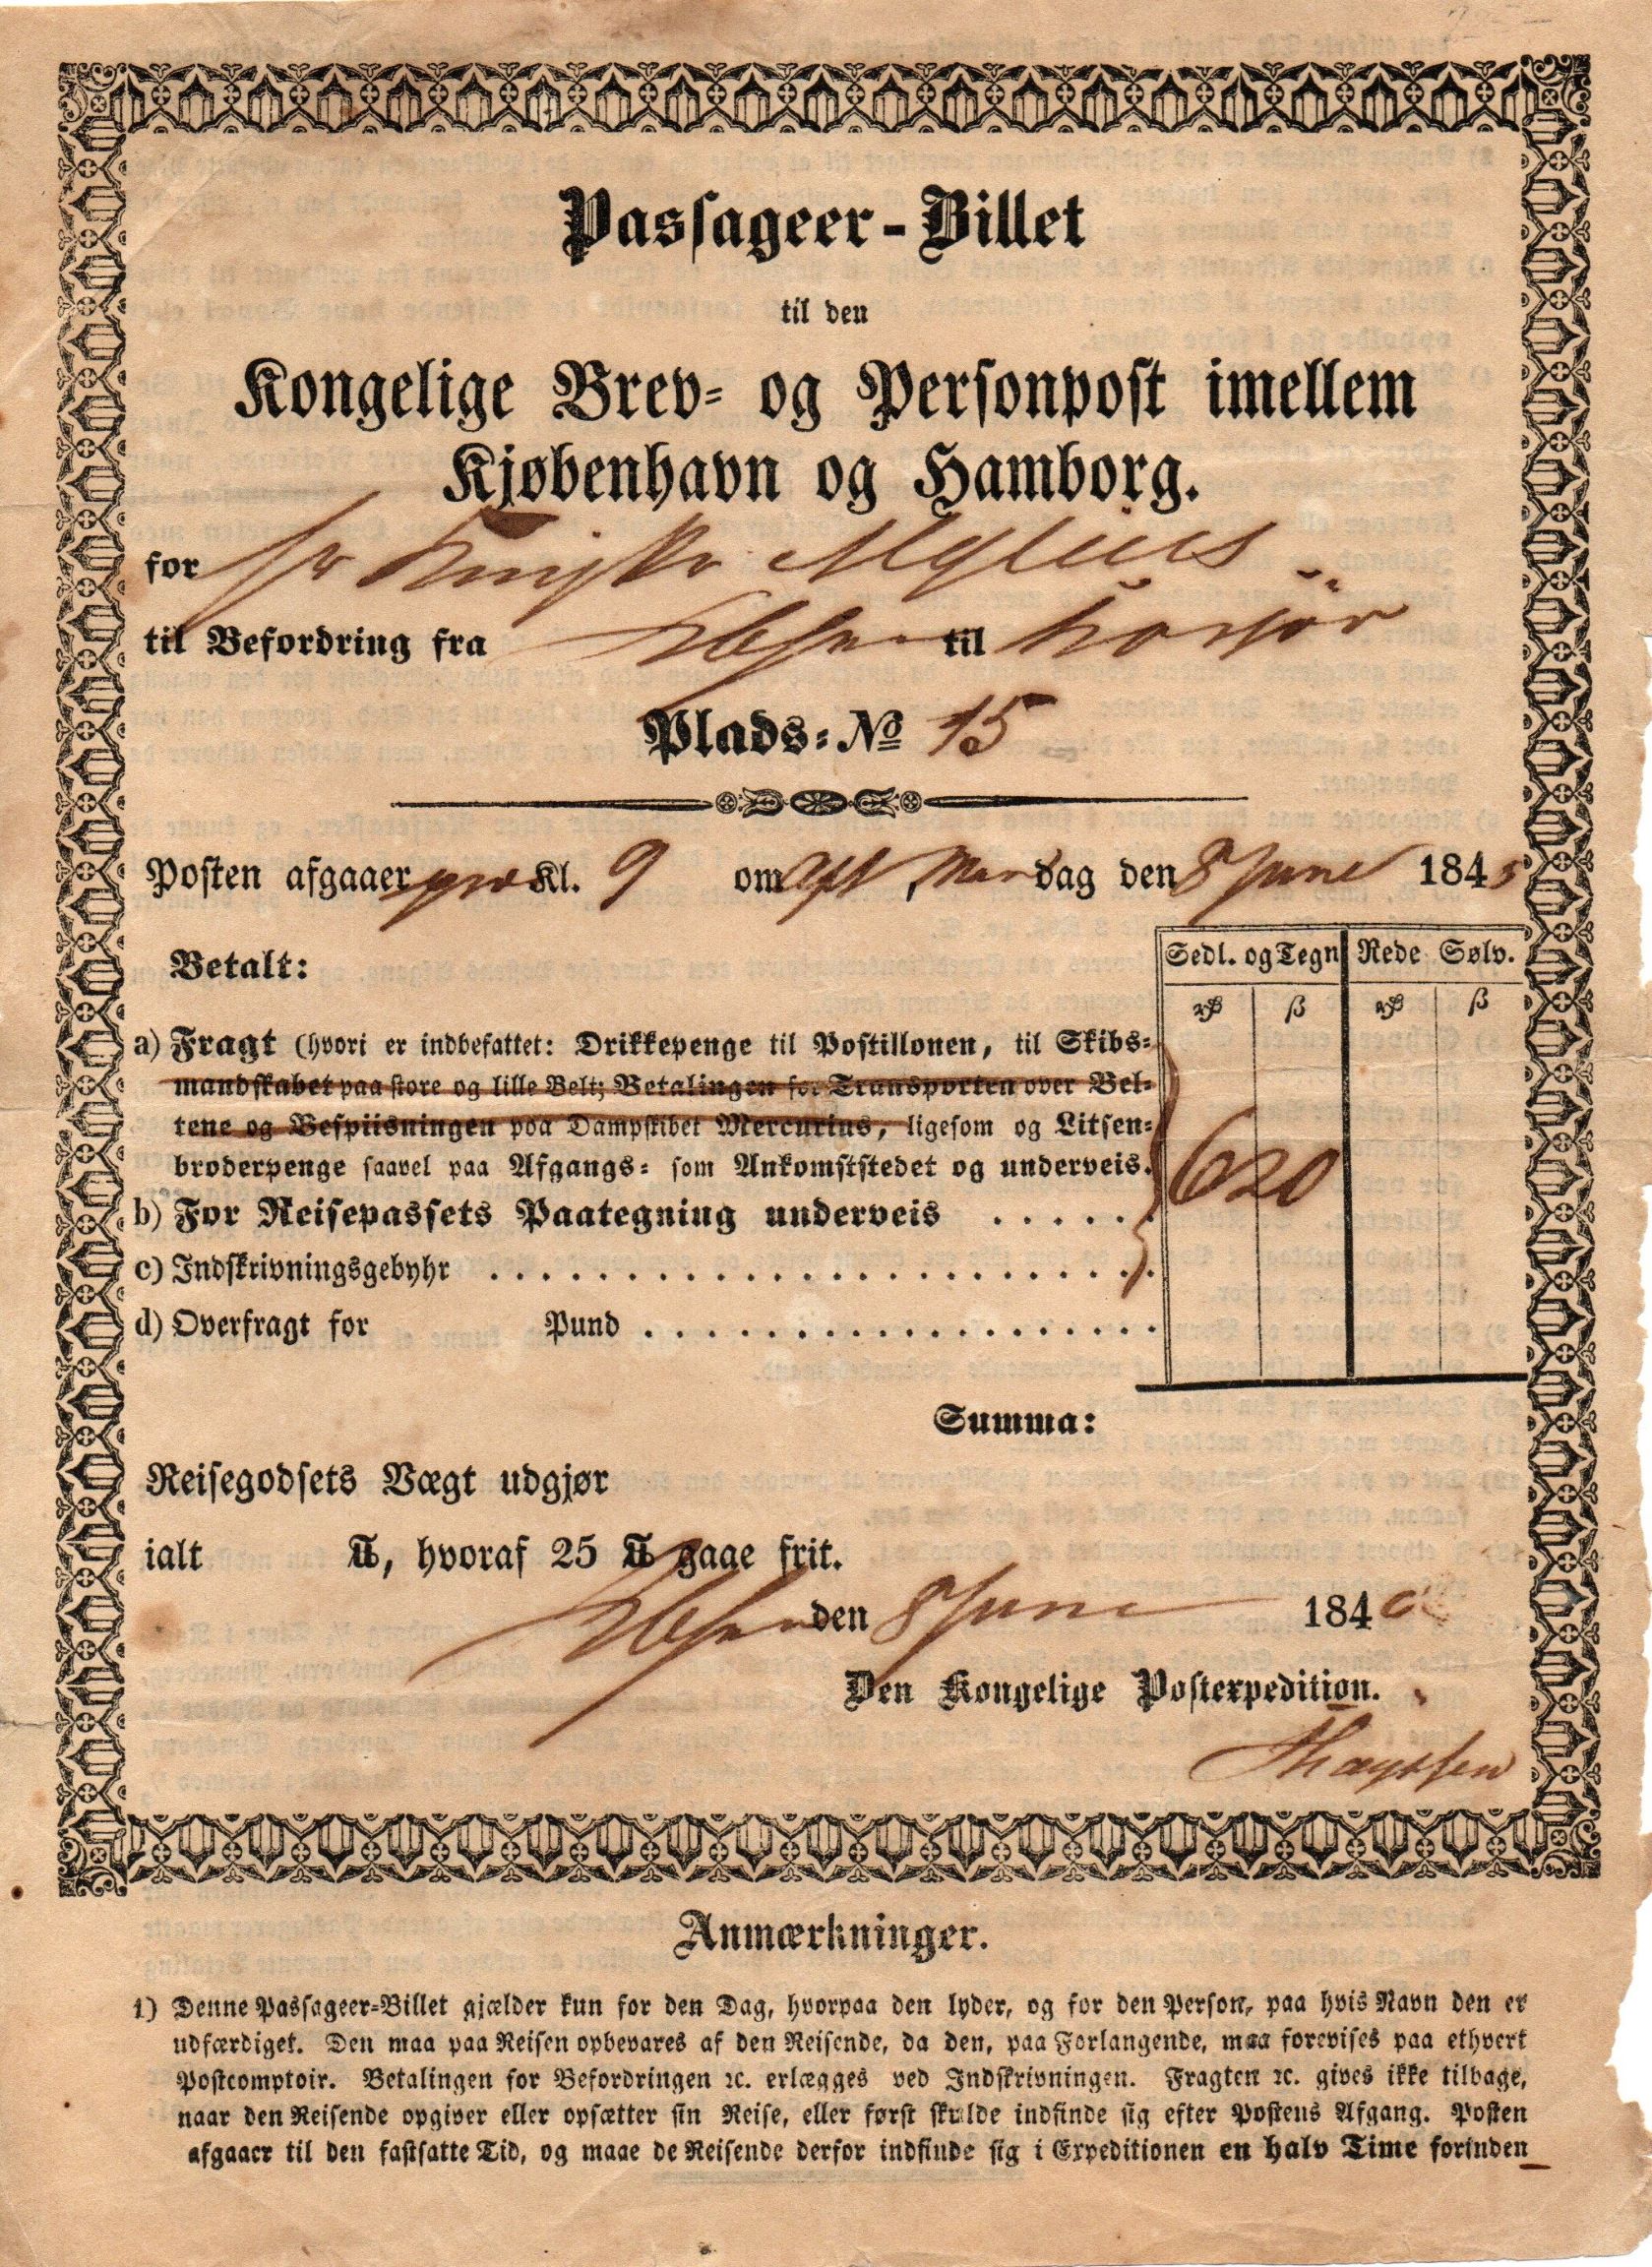 Passageer-Billet
til den
Kongelige Brev- og Personpost imellem
Kjøbenhavn og Hamborg.
for Mylius
til Befordring fra Kbhvn til Korsör
Plads: No 15
Posten afgaaer Kl. 9 om Aft, Mandag den 8 Juni 184
Betalt:
Sedl. og Tegn Rede Sølv.
rβ β rβ β
a) Fragt (hvori er indbefattet: Drikkepenge til Postillonen, til Skibs-
mandskabet paa store og lille Belt; Betalingen for Transporten over Bel-
tene og Bespiisningen paa Dampskibet Mercurius, ligesom og Litsen-
broderpenge saavel paa Afgangs- som Ankomststedet og underveis.
6 20
b) For Reisepassets Paategning underveis . . . . . .
c) Indskrivningsgebyhr . . . . . . . . . . . . . . . . . . . . . . . . .
d) Overfragt for Pund . . . . . . . . . . . . . . . . . . . .
Summa:
Reisegodsets Vægt udgjør
ialt ℔, hvoraf 25 ℔ gaae frit.
Kbhvn den 8 Juni 184
Den Kongelige Postexpedition.
Anmærkninger.
1) Denne Passageer-Billet gjælder kun for den Dag, hvorpaa den lyder, og for den Person, paa hvis Navn den er
udfærdiget. Den maa paa Reisen opbevares af den Reisende, da den, paa Forlangende, maa forevises paa ethvert
Postcomptoir. Betalingen for Befordringen ꝛc. erlægges ved Indskrivningen. Fragten ꝛc. gives ikke tilbage,
naar den Reisende opgiver eller opsætter sin Reise, eller først skulde indfinde sig efter Postens Afgang. Posten
afgaaer til den fastsatte Tid, og maae de Reisende derfor indfinde sig i Expeditionen en halv Time forinden